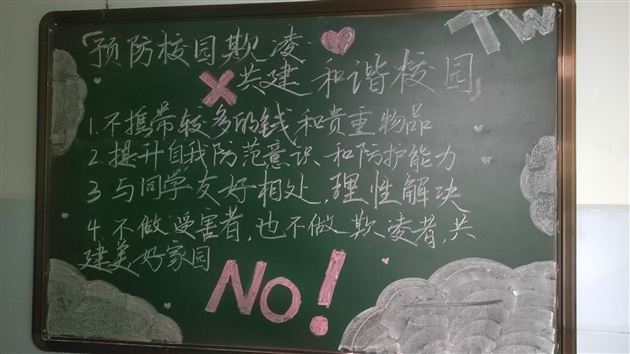 预防校园欺凌
共建和谐校园
1.不携带较多的钱和贵重物品
2.提升自我防范意识和防护能力
3 与同学友好相处,理性解决
4 不做受害者,也不做欺凌者,共
建美好家园
NO!
TW